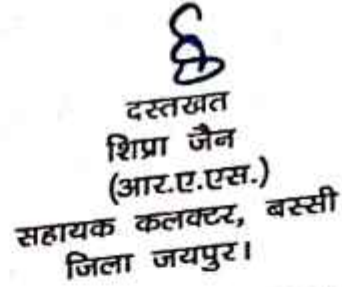 दस्तखत
शिप्रा जैन
(आर.ए.एस.)
सहायक कलक्टर, बस्सी
जिला जयपुर।